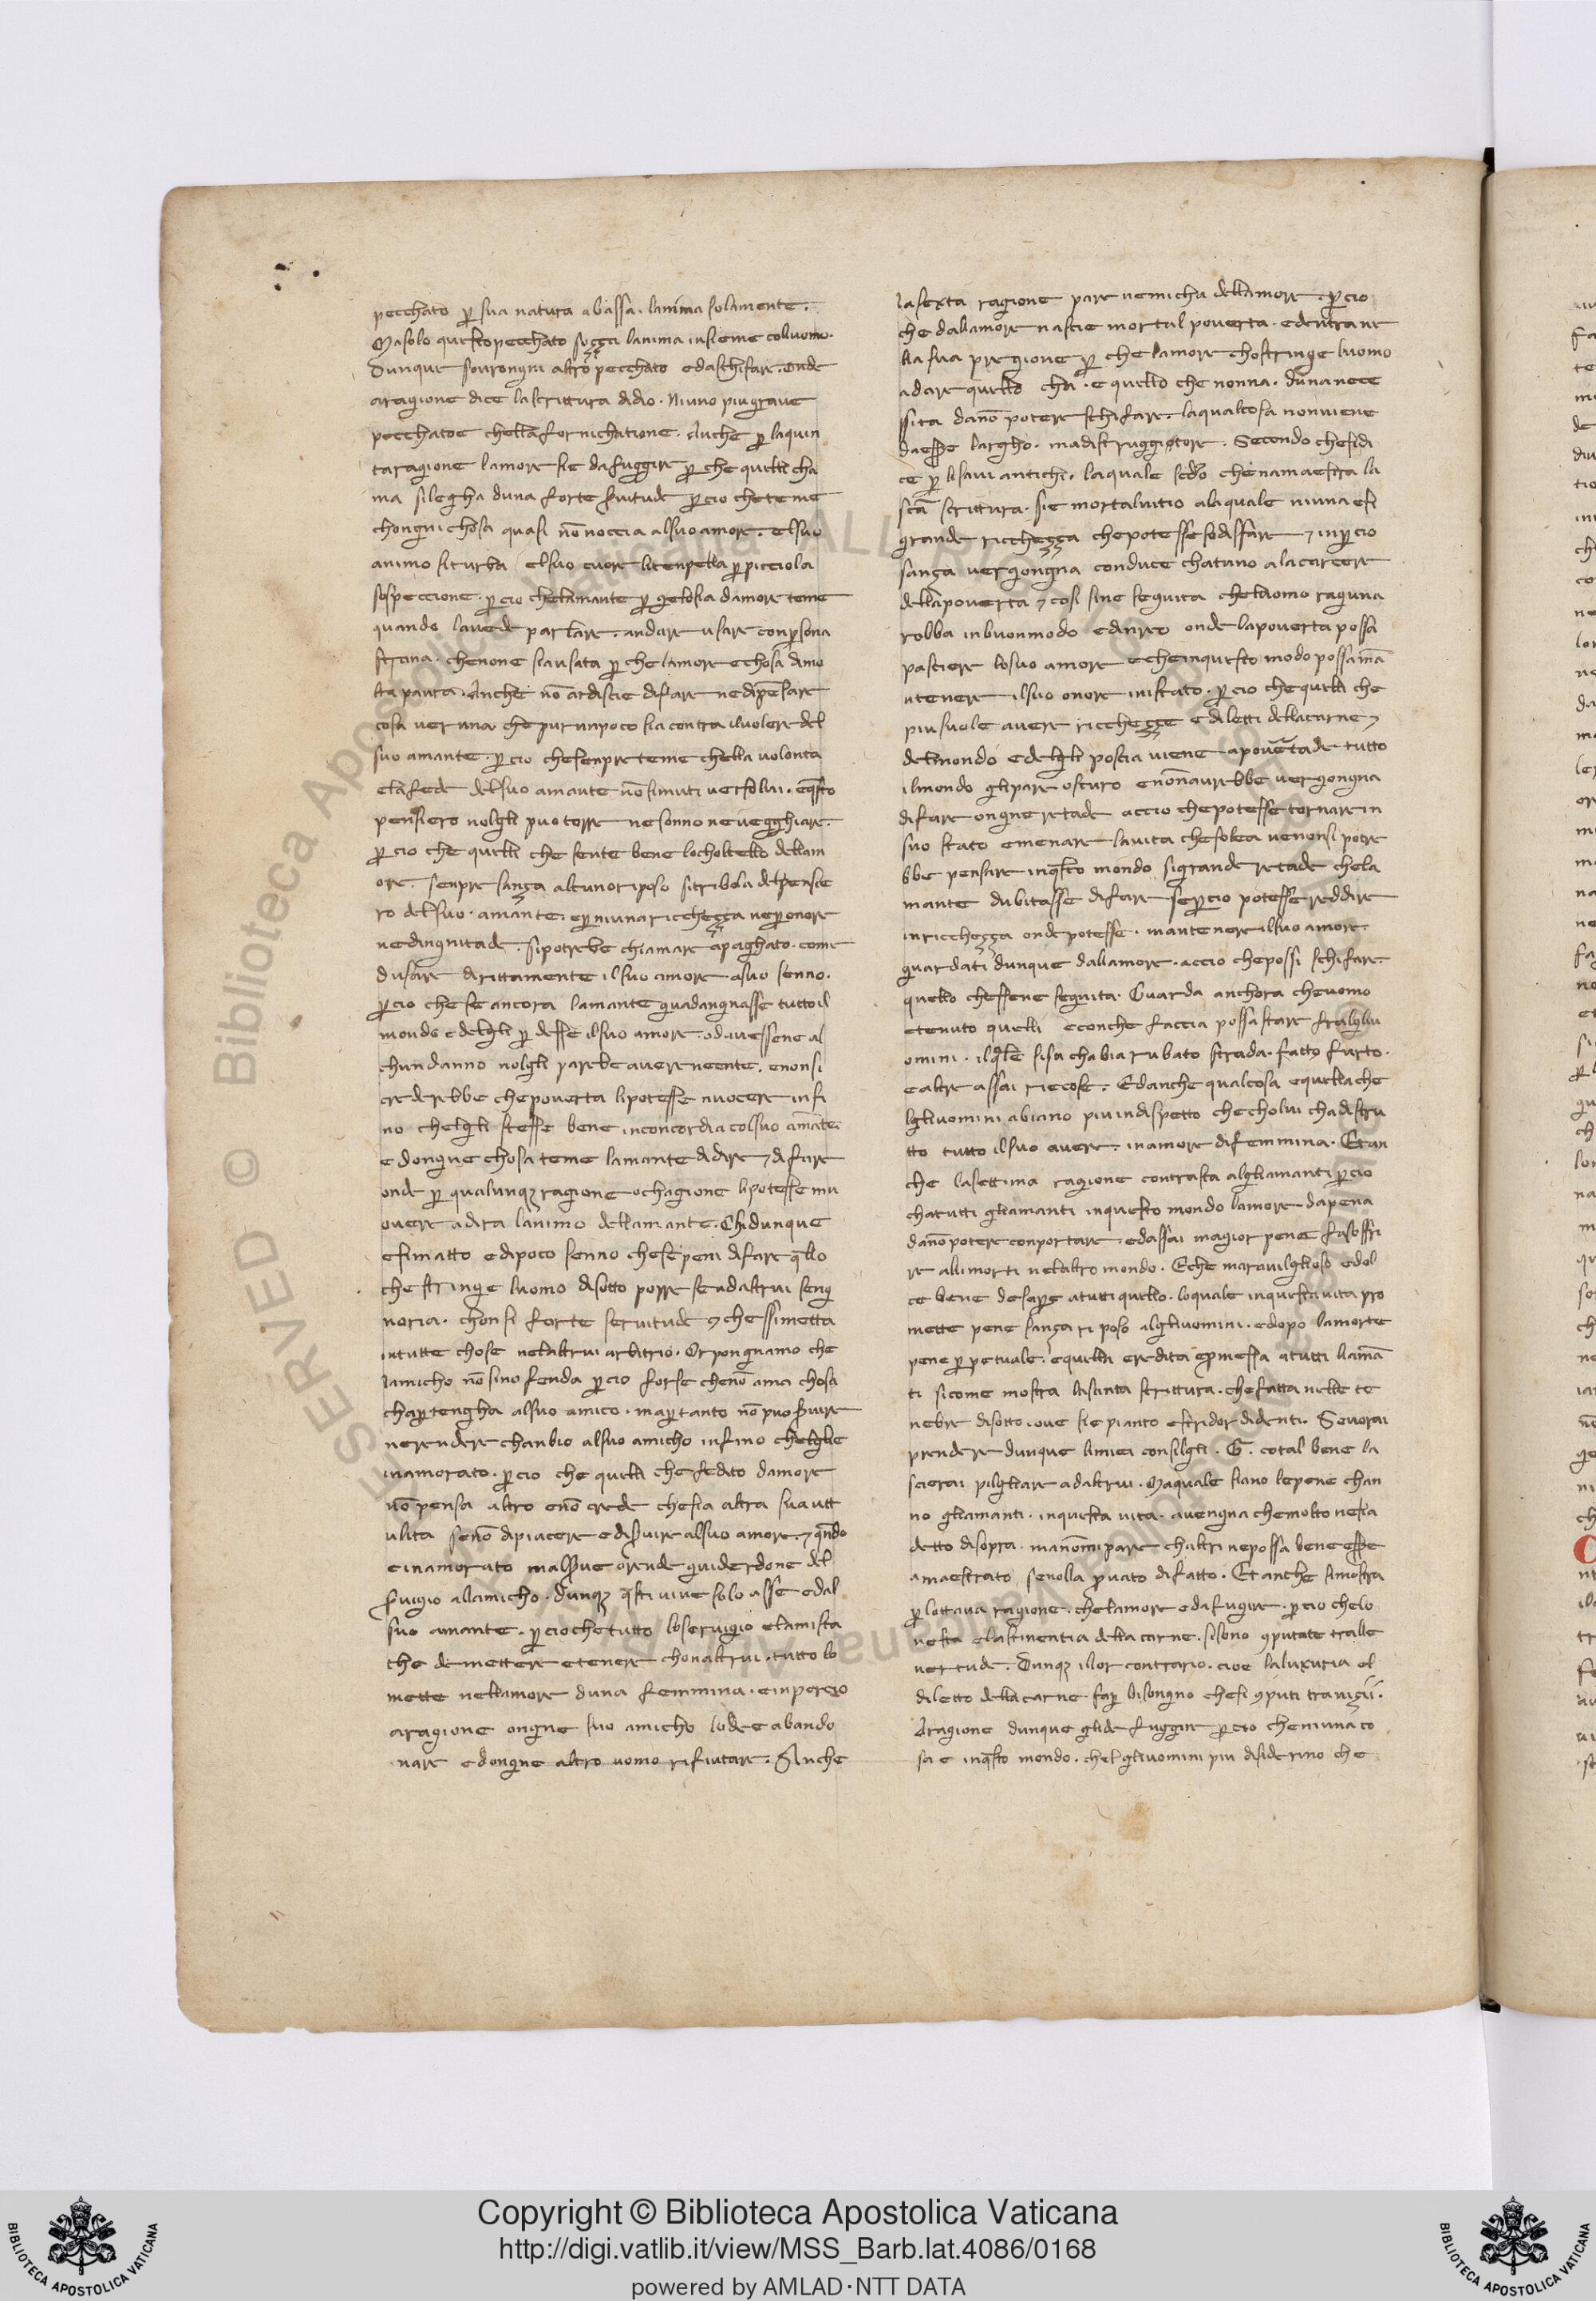 pecchato p sua natura abassa. lanima solamente.
Masolo questopecchato soçça lanima insieme colluomo.
Dunque sovrongni altro pecchato edaschifare. onde
aragione dice lascrittura didio. Niuno piugrave
pecchatoe chella fornichatione. Anche p laquin
taragione lamore sie dafuggire p che quelli cha
ma silegha duna forte svitude p cio cheteme
chongni chosa quasi nō noccia alsuo amore. elsuo
animo siturba elsuo cuore litenpella p picciola
sospeccione. p cio chelamante p gelosia damore teme
quando lavede parlare. andare usare. conpsona
strana. chenone siausata p che lamore echosa dimo
lta paura. Anche nō ardiscie difare nedipēsare
cosa veruna che purunpoco sia contra ilvolere del
suo amante. p cio chesenpre teme chella volonta
elafede delsuo amante nōsimuti versolui. eqsto
pensiero nolgli puo torre ne sonno ne vegghiare.
p cio che quelli che sente bene locholtello dellam
ore. senpre sança alcunoriposo sitribola delpensie
ro delsuo. amante. ep niuna ricchecça nep onore
nedingnitade. sipotrebe chiamare apaghato. come
dusare dirittamente ilsuo amore. asuo senno.
p cio chese ancora lamante guadangnasse tuttoil
mondo edelgli p desse ilsuo amore. odavessene al
chun danno nolgli parebe avere neente. enonsi
crederebbe chepoverta lipotesse nuocere infi
no chelgli stesse bene inconcordia colsuo amāte.
edongne chosa teme lamante didire 7 difare
onde p qualunqʒ ragione ochagione lipotesse mu
overe adira lanimo dellamante. Chidunque
esimatto edipoco senno chesepeni difare qllo
che stringe luomo disotto porre sendaltrui sengi
noria. chonsi forte servitude 7 chessimetta
intutte chose nelaltrui arbitrio. Orpongnamo che
lamicho nō sinofenda p cio forse chenō ama chosa
chaptengha alsuo amico. map tanto nō puo svire
nerendere chanbio alsuo amicho infino chelglie
inamorato. p cio che quelli che fedito damore
nō pensa altro enō crede chesia altra sua utt
ulita senō dipiacere edisvire alsuo amore. 7 qndo
einamorato malsve orende guiderdone del
svigio allamicho. Dunqʒ qsti vive solo asse edal
suo amante. p ciochetutto loservigio elamista
che de mettere etenere chonaltrui. tutto lo
mette nellamore duna femmina. einpercio
aragione ongne suo amicho lodee abando
nare edongne altro uomo rifiutare. Anche
lasexta ragione pare nemicha dellamore. p cio
che dallamore nascie mortal poverta. edentrane
lla sua pregione p che lamore chostringe luomo
adare quello cha. e quello che nonna. duna nece
ssita danō potere schifare. laqualcosa nonviene
daesse largho. madistruggitore. Secondo chesidi
ce p lisavi antichi. laquale sedo chenamaestra la
scā scrittura. sie mortalvitio alaquale niuna esi
grande ricchecça chepotesse sodisfare 7 inp cio
sança vergongna conduce chatuno alacarcere
dellapoverta 7 cosi sine seguita chelluomo raguna
robba inbuonmodo edinreo onde lapoverta possa
pasciere losuo amore echeinquesto modo possamā
ntenere ilsuo onore inistato. p cio chequelli che
piu suole avere ricchecçe ediletti dellacarne 7
delmondo edelgli poscia viene apovertade tutto
ilmondo glipare oscuro enonaurebbe vergongna
difare ongne retade accio chepotesse tornare in
suo stato emenare lavita chesolea venonsi potre
bbe pensare inqsto mondo sigrande retade chela
mante dubitasse difare sep cio potesse reddire
inricchecça ondepotesse. mantenere ilsuo amore.
guardati dunque dallamore. accio chepossi schifare.
quello chessene seguita. Guarda anchora cheuomo
etenuto quelli econche faccia possastare fralglu
omini. ilqle sisa chabia rubato strada. fatto furto.
ealtre assai riecose. Edanche qualcosa equella che
lgliuomini abiano piu indispetto checholui chadistru
tto tutto ilsuo avere. inamore difemmina. Etan
che lasettima ragione contrasta algliamanti p cio
chatutti gliamanti inquesto mondo lamore dapena
danōpotere conportare. edassai magior pene fasoffri
re allimorti nelaltro mondo. Eche maravilglioso edol
ce bene desaps atutti quello. loquale inquestavita pro
mette pene sança riposo algliuomini. edopo lamorte
pene p petuale. equella eredita epmessa atutti liamā
ti sicome mostra lasanta scrittura. chefatta nelle te
nebre disotto. ove sie pianto estridor didenti. Sevorai
prendere dunque limiei consilgli. G. cotal bene la
scierai pilgliare adaltrui. Maquale siano lepene chan
no gliamanti. inquesta vita. avengna chemolto nesia
detto disopra. manōmipare chaltri nepossa bene esse
amaestrato senolla pvato difatto. Etanche simostra
p lottava ragione. chelamore edafugire. p cio chelo
nesta elastinentia della carne. sisono 9putate tralle
vertude. Dunqʒ illor contrario. cioe laluxuria el
diletto dellacarne fap bisongno chesi 9puti travicii.
Aragione dunque glide fuggire p cio cheniuna co
sa e inqsto mondo. chel gliuomini piu disiderino che